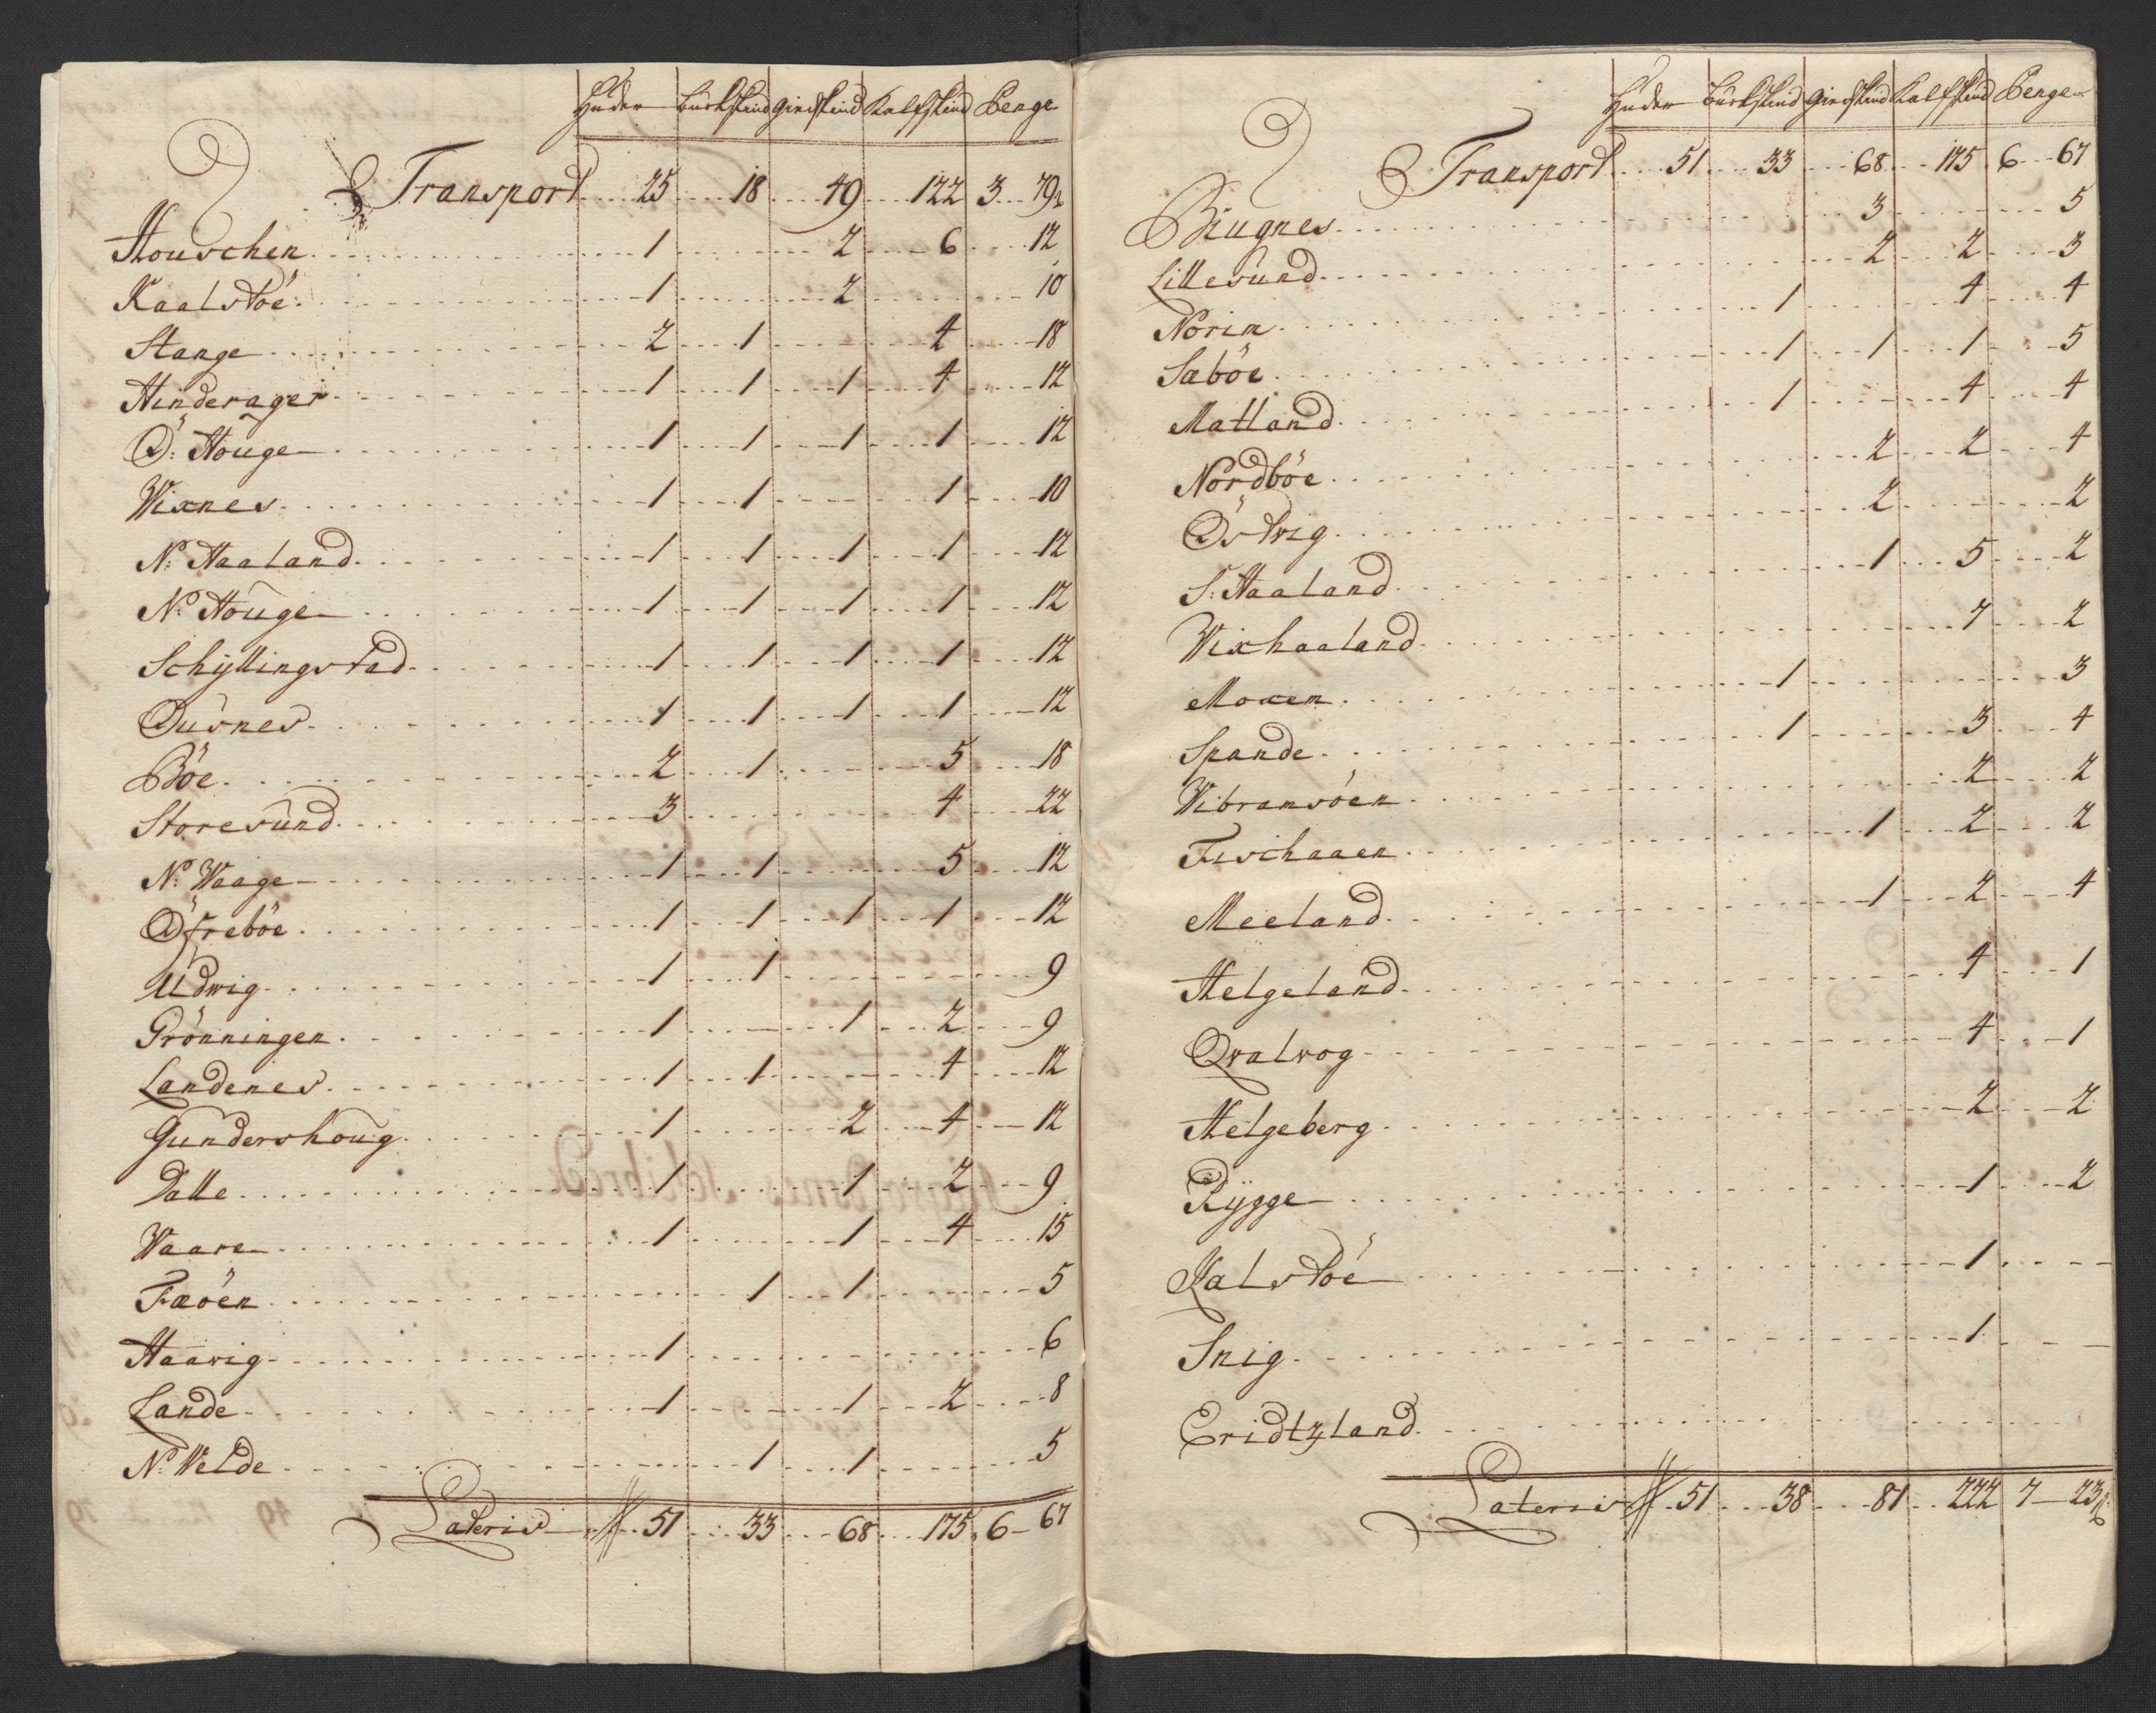 Huder Buckskind Giedskind Kalfskind Penge
Transport 25 18 49 122 3 79½
Houschen 1 2 6 12
Kaalstöe 1 2 10
Stange 2 1 4 18
Hinderager 1 1 1 4 12
Ö: Houge 1 1 1 1 12
Wixnes 1 1 1 10
N: Haaland 1 1 1 1 12
N: Houge 1 1 1 1 12
Schÿllingstad 1 1 1 1 12
Dusnes 1 1 1 1 12
Böe 2 1 5 18
Storesund 3 4 22
N: Waage 1 1 5 12
Öfreböe 1 1 1 1 12
Udwig 1 1 9
Grönningen 1 1 2 9
Landenes 1 1 4 12
Gundershoug 1 2 4 12
Dalle 1 1 2 9
Waare 1 1 4 15
Fæöen 1 1 5
Haavig 1 6
Lande 1 1 2 8
N: Velde 1 1 5
Lateris 51 33 68 175 6 67
Huder Buckskind Giedskind Kalfskind Penge
Transport 51 33 68 175 6 67
Biugnes 3 5
Lillesund 2 2 3
Norim 1 4 4
Sæböe 1 1 1 5
Matland 1 4 4
Nordböe 2 2 4
Östvig 2 2
S: Haaland 1 5 2
Wixhaaland 7 2
Moxem 1 3
Spande 1 3 4
Vibransöen 2 2
Fischaaen 1 2 2
Meeland 1 2 4
Helgeland 4 1
Qvalvog 4 1
Helgeberg 2 2
Rÿgge 1 2
Kalstöe 1
Snig 1
Eridtzland
Lateris 51 38 81 222 7 23½